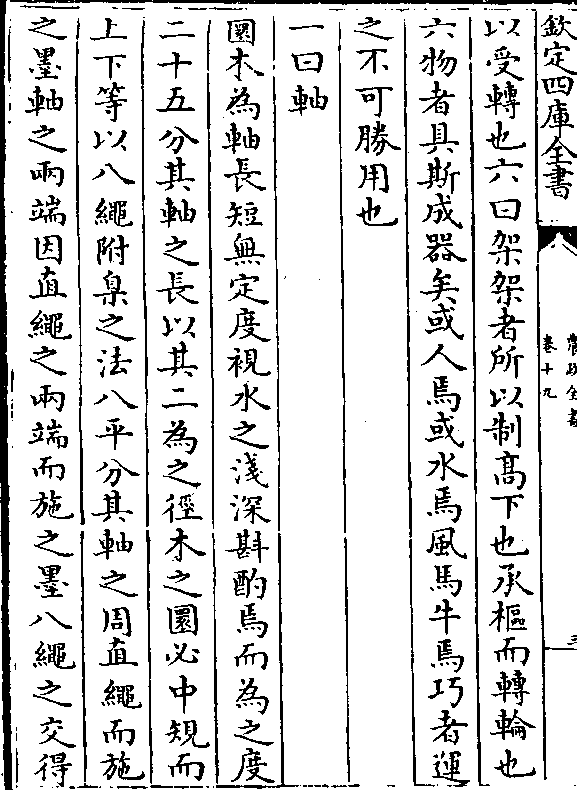 欽定四庫全書
農政全書
卷十九
三
以受轉也六曰架架者所以制高下也承樞而轉輪也
六物者具斯成器矣或人焉或水焉風馬牛焉巧者運
之不可勝用也
一曰軸
圜木為軸長短無定度視水之淺深斟酌焉而為之度
二十五分其軸之長以其二為之徑木之圜必中規而
上下等以八繩附臬之法八平分其軸之周直繩而施
之墨軸之兩端因直繩之兩端而施之墨八繩之交得